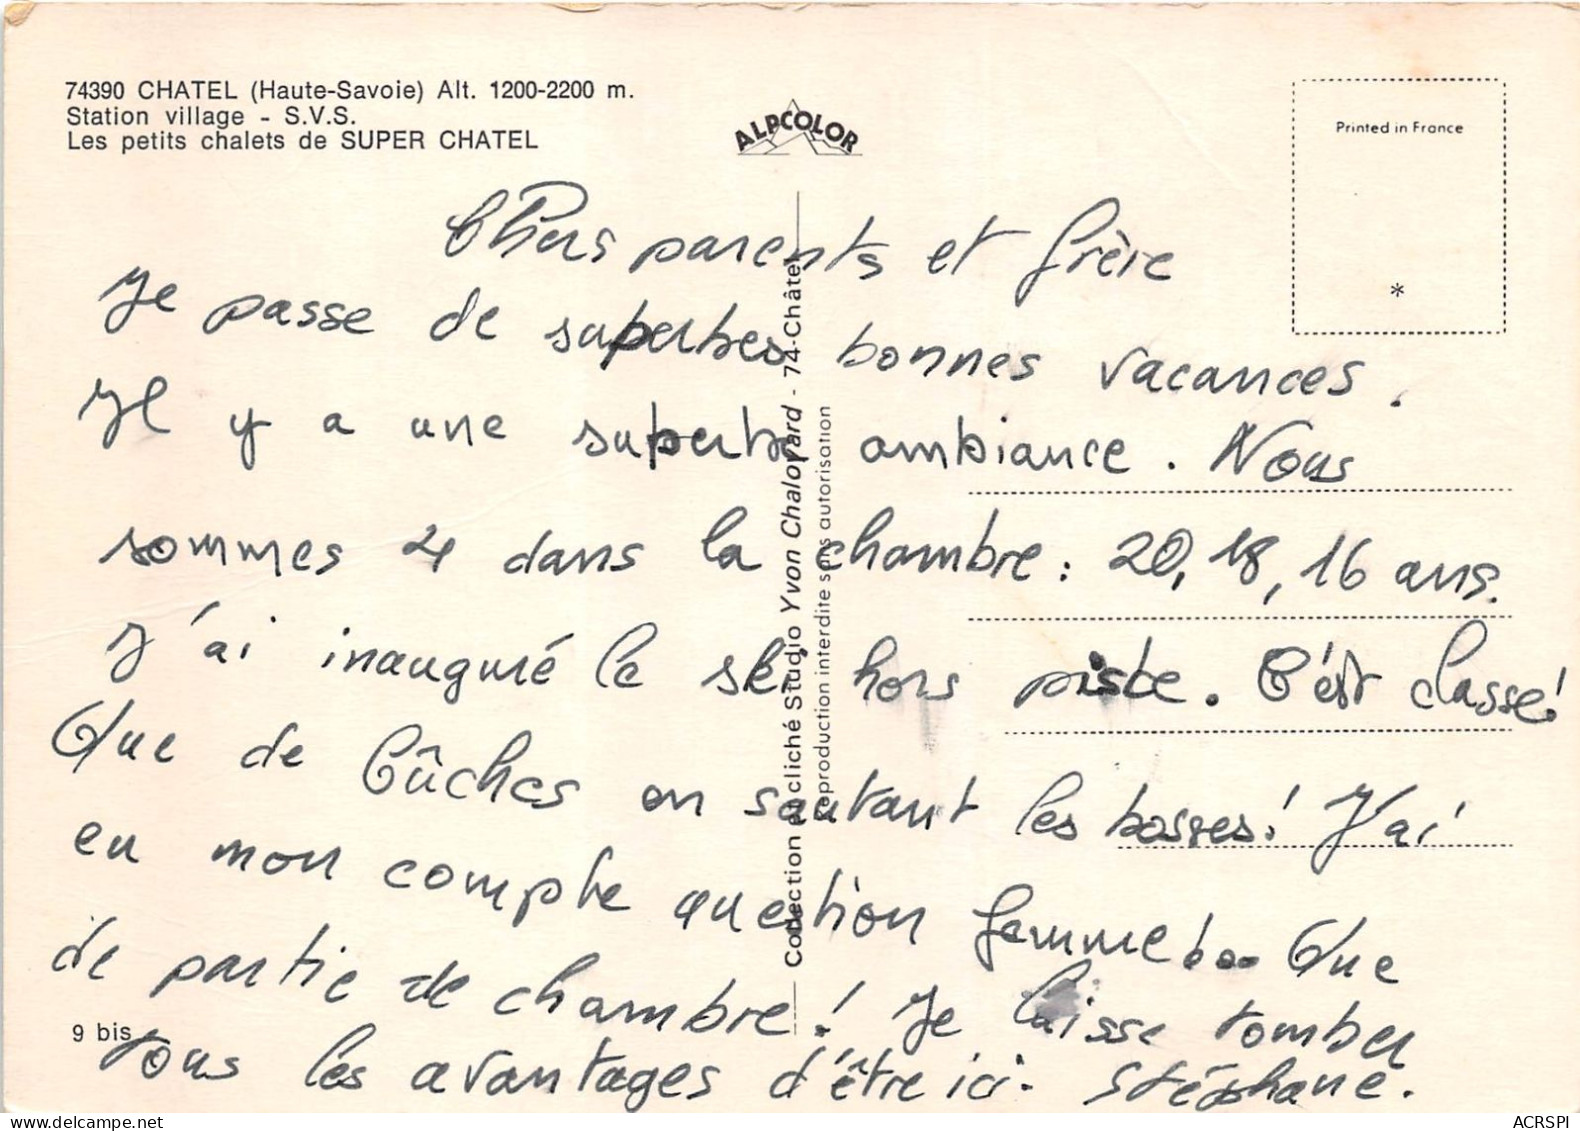 74390 CHATEL (Haute-Savoie) Alt. 1200-2200 m.
Station village - S.V.S.
Les petits chalets de SUPER CHATEL
ALPCOLOR
Printed in France
*
Chers parents et frère
Je passe de superbes bonnes vacances.
Il y a une superbe ambiance. Nous
sommes 4 dans la chambre : 20, 18, 16 ans.
J'ai inauguré le ski hors piste. C'est classe!
Que de bûches en sautant les bosses! J'ai
eu mon compte question femme! ... Que
de partie de chambre! Je laisse tomber
tous les avantages d'être ici. Stéphane.
9 bis
Collection et cliché Studio Yvon Chalopard - 74-Châtel
Reproduction interdite sans autorisation
ACRSPI